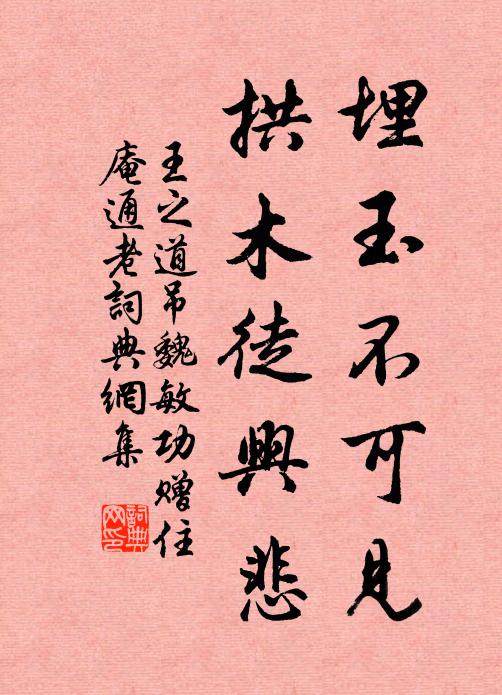 埋玉不可見
拱木徒興悲
王之道吊魏敏功贈住
庵通老詞典網集
詞典网印